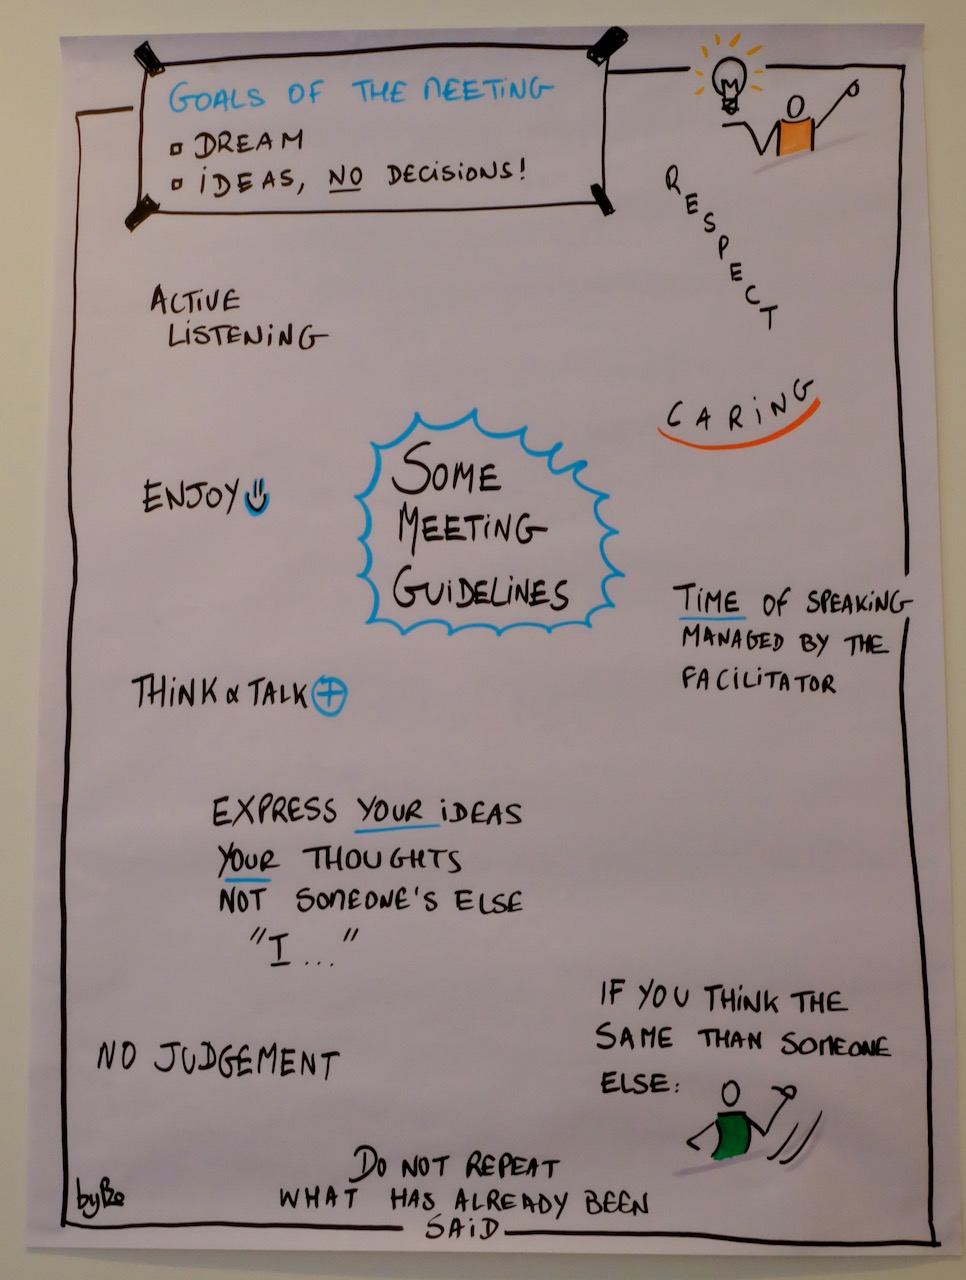 GOALS OF THE MEETING
DREAM
IDEAS, NO DECISIONS!
M
RESPECT
ACTIVE
LISTENING
CARING
ENJOY
SOME
MEETING
GUIDELINES
TIME OF SPEAKING
MANAGED BY THE
FACILITATOR
THINK & TALK +
EXPRESS YOUR IDEAS
YOUR THOUGHTS
NOT SOMEONE'S ELSE
"I..."
IF YOU THINK THE
SAME THAN SOMEONE
ELSE:
NO JUDGEMENT
DO NOT REPEAT
WHAT HAS ALREADY BEEN
SAID
by